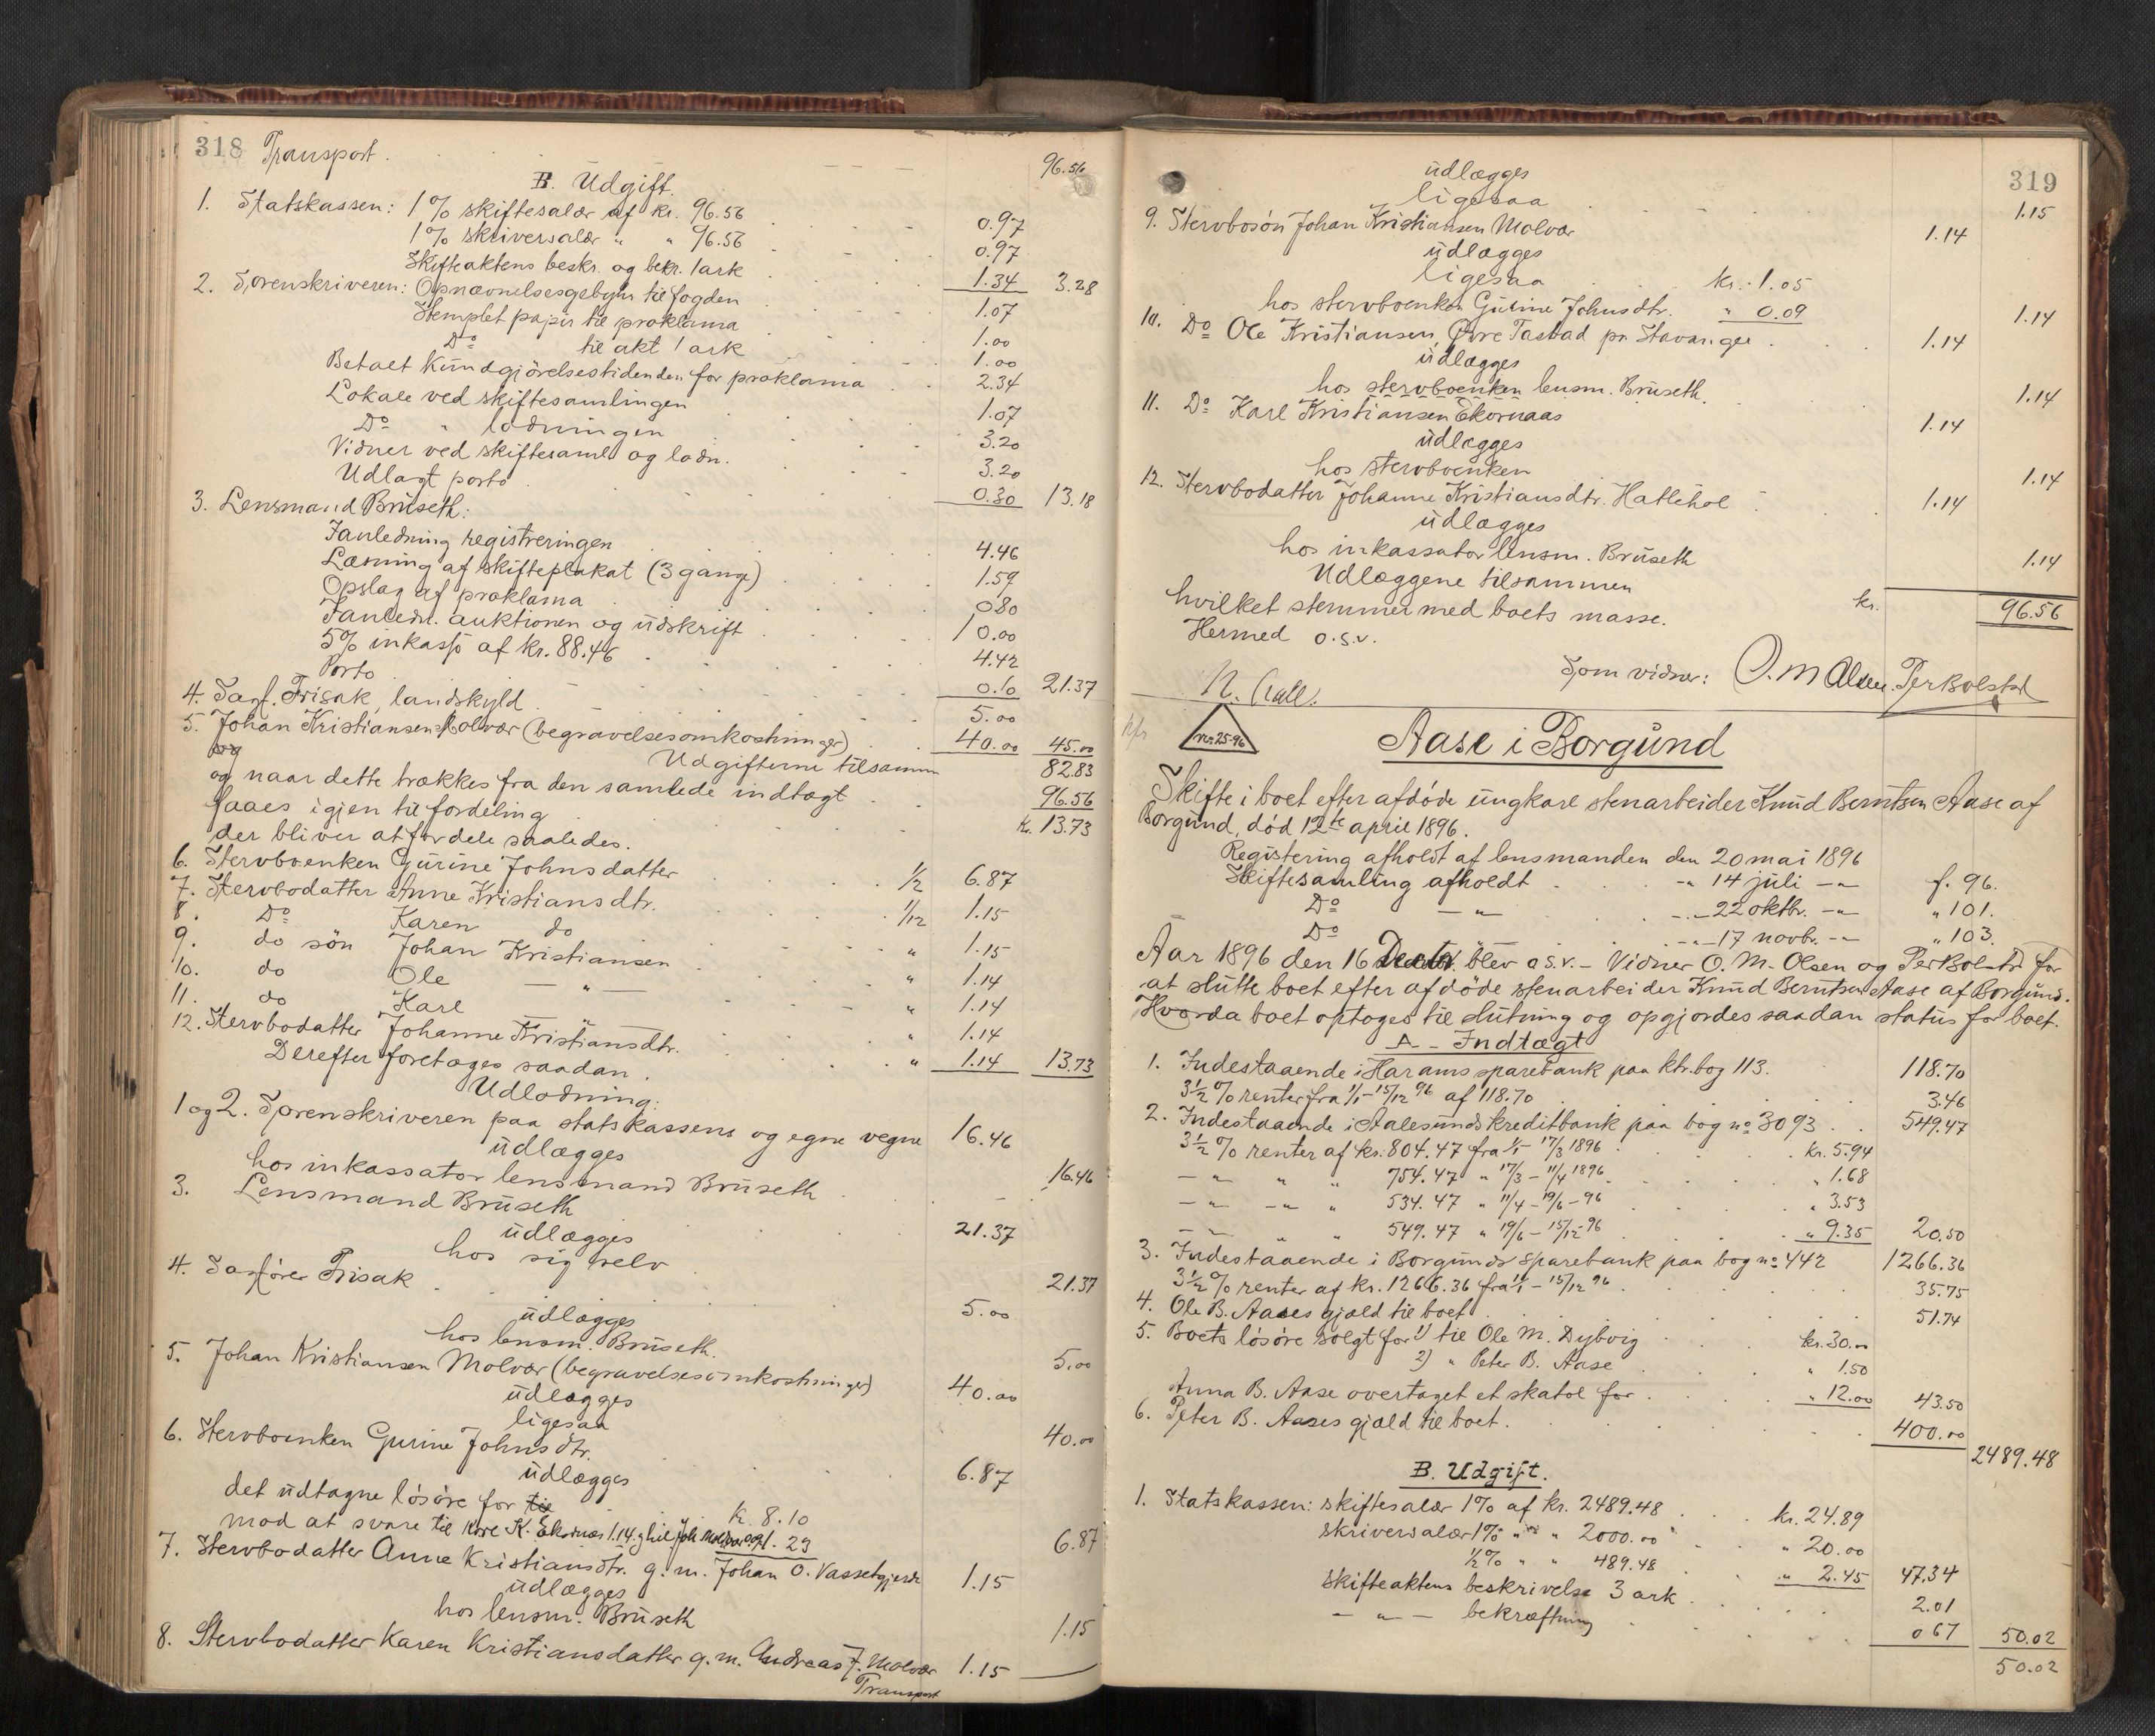 318 Transport. 96.56
B. Udgift.
1. Statskassen: 1% skiftesalær af kr. 96.56 0.97
1% skriversalær " " 96.56 0.97
Skifteaktens beskr. og bekr. 1 ark 1.34 3.28
2. Sorenskriveren: Opnævnelsesgebyhr til fogden 1.07
Stemplet papir til proklama 1.00
Do til akt 1 ark 1.00
Betalt Kundgjörelsestidenden for proklama 2.34
Lokale ved skiftesamlingen 1.07
Do " lodningen 3.20
Vidner ved skiftesaml. og lodn. 3.20
Udlagt porto 0.30 13.18
3. Lensmand Bruseth:
I anledning registreringen 4.46
Læsning af skifteplakat (3 gange) 1.59
Opslag af proklama 0 80
I anledn. auktionen og udskrift 10.00
5% inkasso af kr. 88.46 4.42
Porto 0.10 21.37
4. Sagf. Frisak, landskyld 5.00
5. Johan Kristiansen Molvær (begravelsesomkostninger) 40.00 45.00
Udgifterne tilsammen 82.83
og naar dette trækkes fra den samlede indtægt 96.56
faaes igjen til fordeling kr. 13.73
der bliver at fordele saaledes.
6. Stervboenken Gurine Johnsdatter 1/2 6.87
7. Stervbodatter Anne Kristiansdtr. 1/12 1.15
8. Do Karen do " 1.15
9. do sön Johan Kristiansen " 1.14
10. do Ole — " — " 1.14
11. do Karl — " — " 1.14
12. Stervbodatter Johanne Kristiansdtr. " 1.14 13.73
Derefter foretoges saadan
Udlodning:
1 og 2. Sorenskriveren paa statskassens og egne vegne 16.46
udlægges
hos inkassator lensmand Bruseth 16.46
3. Lensmand Bruseth 21.37
udlægges
hos sig selv 21.37
4. Sagförer Frisak 5.00
udlægges
hos lensm. Bruseth. 5.00
5. Johan Kristiansen Molvær (begravelsesomkostninger) 40.00
udlægges
ligesaa 40.00
6. Stervboenken Gurine Johnsdtr. 6.87
udlægges
det udtagne lösöre for til kr. 8.10
mod at svare til Karl K. Ekornæs 1.14 og til Joh. Molvær 0.09 1.23 6.87
7. Stervbodatter Anne Kristiansdtr. g. m. Johan O. Vassetgjerde 1.15
udlægges
hos lensm. Bruseth 1.15
8. Stervbodatter Karen Kristiansdatter g. m. Andreas J. Molvær 1.15
Transport
319
udlægges
ligesaa 1.15
9. Stervbosön Johan Kristiansen Molvær 1.14
udlægges
ligesaa kr. 1.05
hos stervboenken Gurine Johnsdtr. " 0.09 1.14
10. Do Ole Kristiansen, Övre Tastad pr. Stavanger 1.14
udlægges
hos stervboenken lensm. Bruseth. 1.14
11. Do Karl Kristiansen Ekornaas 1.14
udlægges
hos stervboenken 1.14
12. Stervbodatter Johanne Kristiansdtr. Hatlehol 1.14
udlægges
hos inkassator lensm. Bruseth 1.14
Udlæggene tilsammen kr. 96.56
hvilket stemmer med boets masse.
Hermed o.s.v.
Som vidner: O. M Olsen. Per Bolstad
nr. 25-96
Aase i Borgund
Skifte i boet efter afdöde ungkarl stenarbeider Knud Berntsen Aase af
Borgund, död 12te april 1896.
Registering afholdt af lensmanden den 20 mai 1896
Skiftesamling afholdt -"- 14 juli -"- f. 96.
Do -"- -"- 22 oktbr. -"- " 101.
Do -"- -"- 17 novb. -"- " 103.
Aar 1896 den 16 Decbr. blev o s.v. - Vidner O. M. Olsen og Per Bolstd for
at slutte boet efter afdöde stenarbeider Knud Berntsen Aase af Borgund.
Hvorda boet optoges til slutning og opgjordes saadan status for boet.
A. - Indtægt
1. Indestaaende i Harams sparebank paa ktr.bog 113. 118.70
3½% renter fra 1/1 - 15/12 96 af 118.70 3.46
2. Indestaaende i Aalesunds kreditbank paa bog no 3093 549.47
3½% renter af kr. 804.47 fra 1/1 - 17/3 1896 kr. 5.94
-"- " " 754.47 " 17/3 - 11/4 1896 " 1.68
-"- -"- " 534.47 " 11/4 - 19/6 - 96 " 3.53
-"- " " 549.47 " 19/6 - 15/12 - 96 " 9.35 20.50
3. Indestaaende i Borgunds sparebank paa bog no 442 1266.36
3½% renter af kr. 1266.36 fra 1/1 - 15/12 96 35.75
4. Ole B. Aases gjæld til boet 51.74
5. Boets lösöre solgt for 1) til Ole M. Dybvig kr. 30.00
2) " Peter B. Aase " 1.50
Anna B. Aase overtaget et skatol for " 12.00 43.50
6. Peter B. Aases gjæld til boet. 400.00
2489.48
B. Udgift.
1. Statskassen: skiftesalær 1% af kr. 2489.48 kr. 24.89
skriversalær 1% " " 2000.00 " 20.00
½% " " 489.48 " 2.45 47.34
skifteaktens beskrivelse 3 ark 2.01
— " — bekræftning 0 67 50.02
50.02